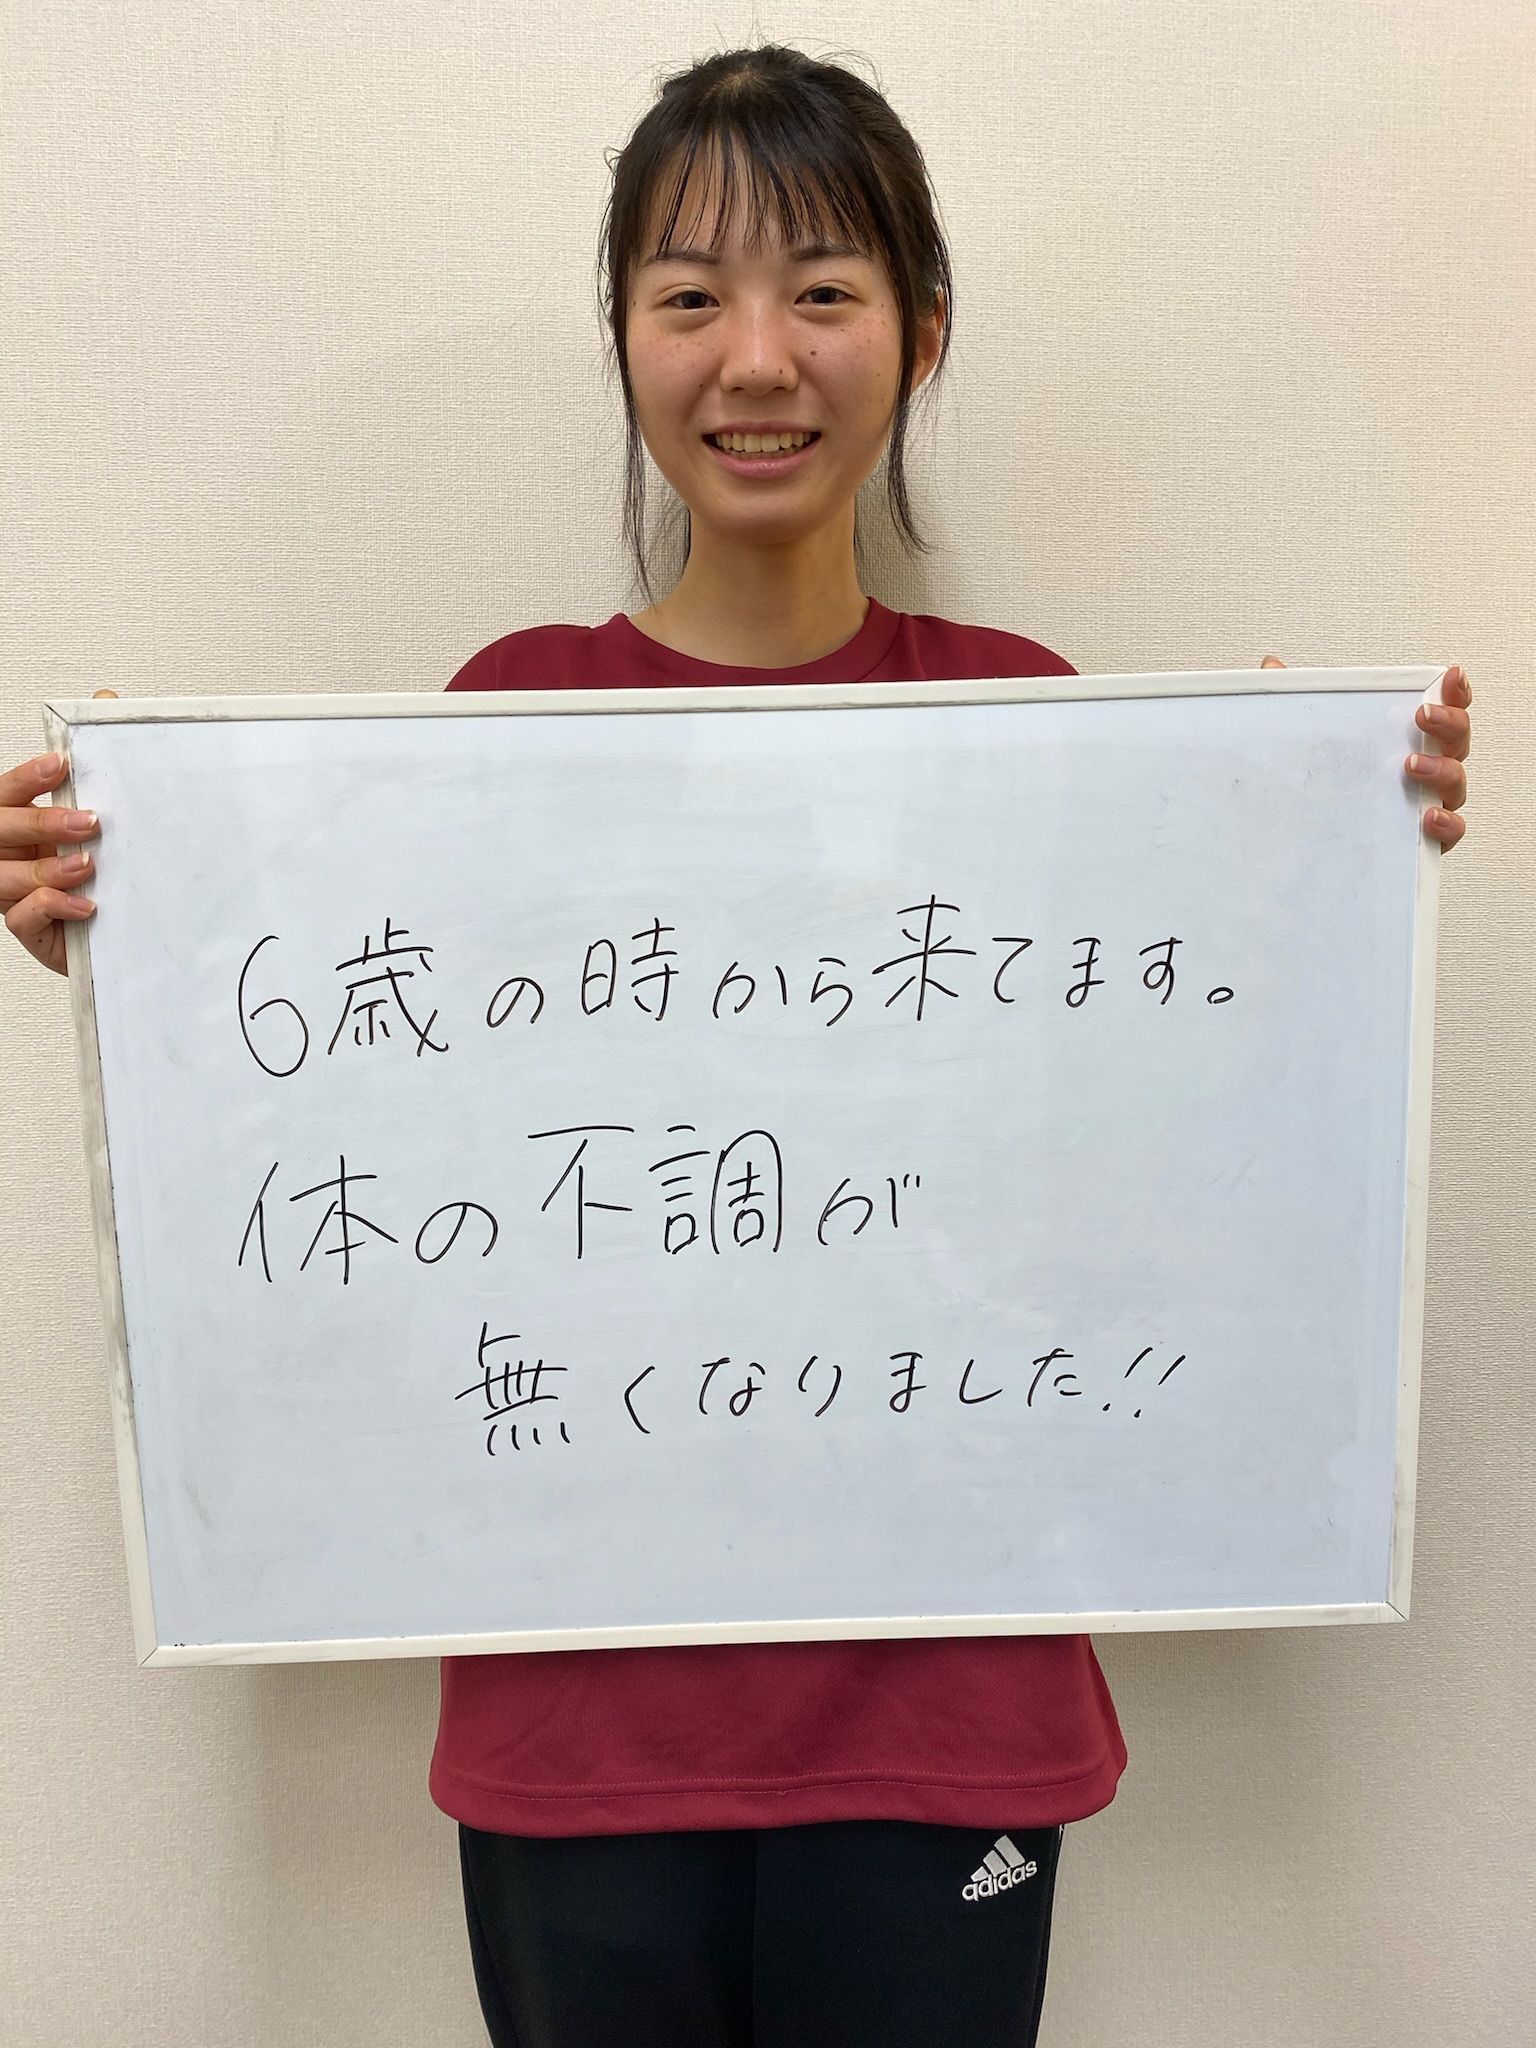 6歳の時から来てます。
体の不調が
無くなりました!!
adidas